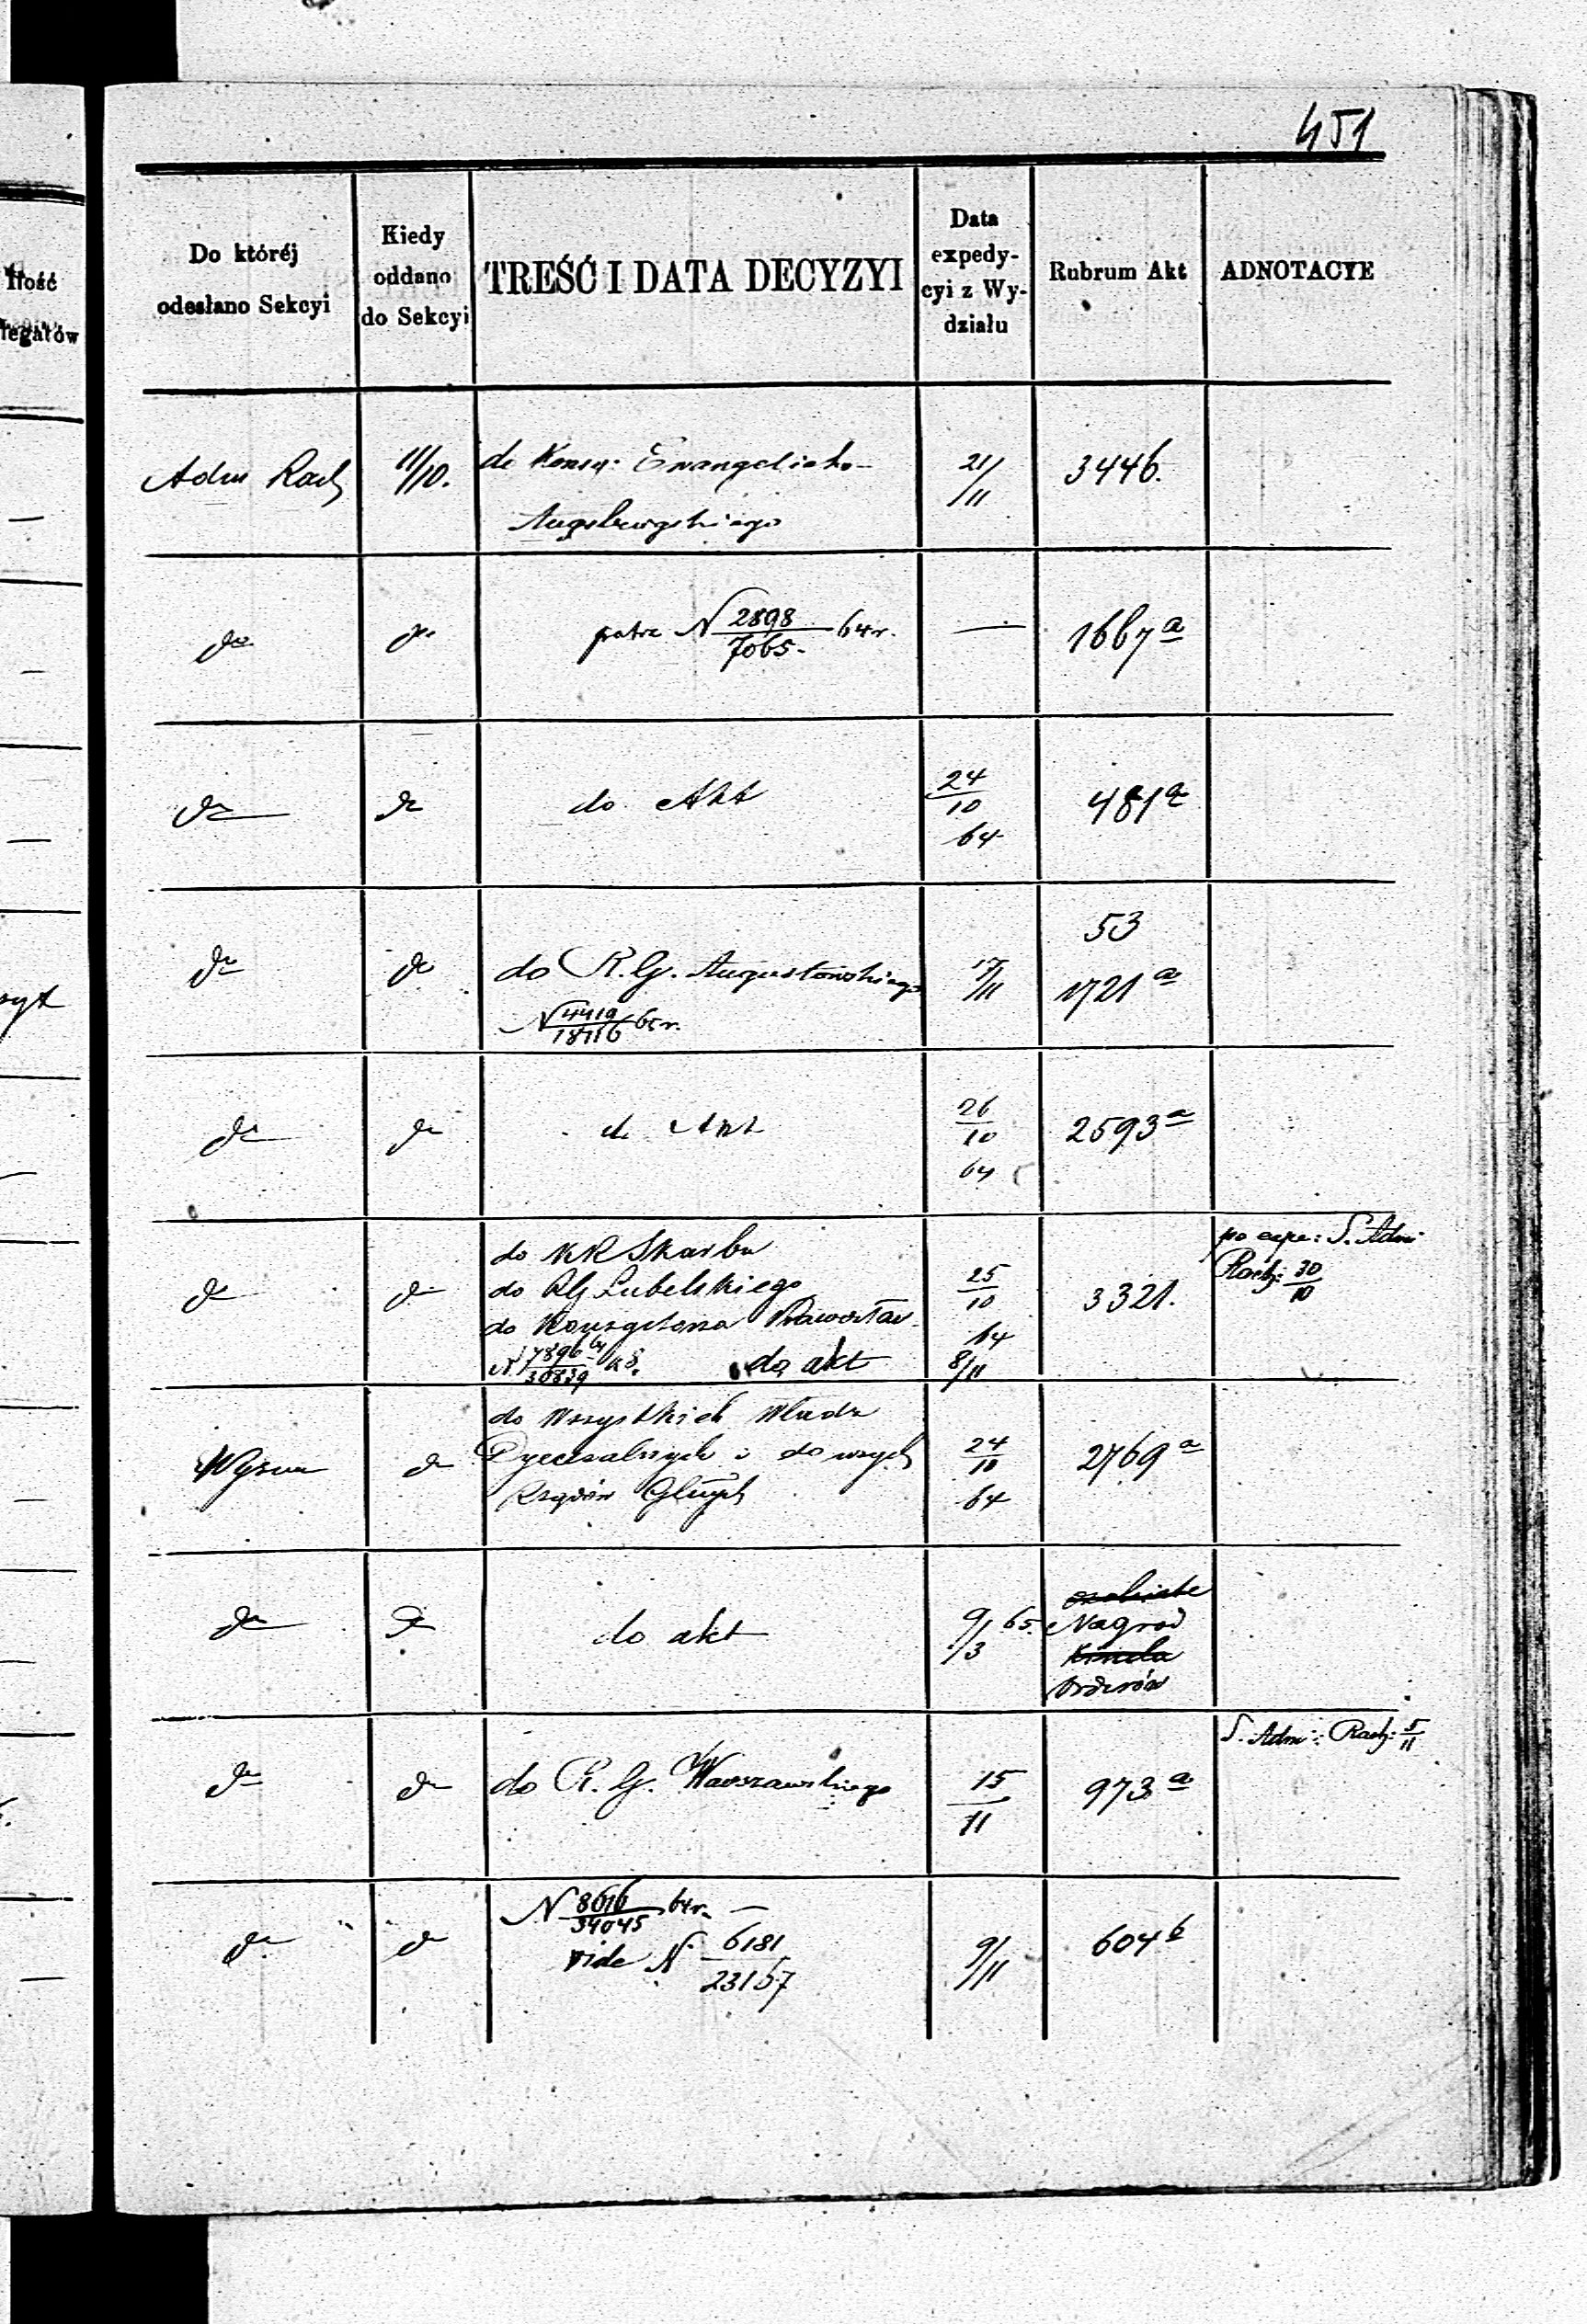 451
Ilość
legatów
Do któréj
odesłano Sekcyi
Kiedy
oddano
do Sekcyi
TREŚĆ I DATA DECYZYI
Data
expedy-
cyi z Wy-
działu
Rubrum Akt
ADNOTACYE
Adm Rach
11/10.
do Konsy: Evangelicko-
Augsburgskiego
21/11
3446.
do
do
patrz N 2898/7065 64 r.
—
1667 a
do
do
do Akt
24/10
64
481 a
do
do
do R. G. Augustowskiego
N 4419/18716 65 r.
17/11
53
1721 a
do
do
do Akt
26/10
64
2593 a
do
do
do KR Skarbu
do RG Lubelskiego
do Konsystorza Prawosław
N 7896/30839 64 k 8. do akt
25/10
64
8/11
3321.
po expe: S. Adm
Rach: 30/10
Wyznn
do
do Wszystkich Władz
Dyecezalnych i do wszych
Rządów Głnych
24/10
64
2769 a
do
do
do akt
9/3 65.
Nagrod
Orderów
do
do
do R. G. Warszawskiego
15/11
973 a
S. Adm: Rach: 5/11
do
do
N 8616/34045 64 r. —
vide N 6181/23167
9/11
604 b